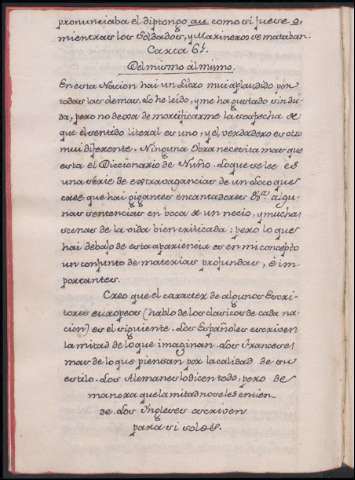 pronunciaba el diptongo au como si fuese o
mientras los Soldados, y Marineros se mataban.
Carta 61.
Del mismo al mismo.
En esta Nacion hai un Libro mui aplaudido por
todas las demas. Lo he leido, y me ha gustado sin du-
da, pero no dexa de mortificarme la sospecha de
que el sentido literal es uno, y el verdadero es otro
mui diferente. Ninguna Obra necesita mas que
esta el Diccionario de Nuño. Lo que se lee es
una serie de extravagancias de un Loco que
creé que hai gigantes encantadores &ra. algu-
nas sentencias en boca de un necio, y muchas
scenas de la vida bien criticada: pero lo que
hai debajo de esta apariencia es en mi concepto
un conjunto de materias profundas, é im-
portantes.
Creo que el caracter de algunos Escri-
tores europeos (hablo de los clasicos de cada na-
cion) es el siguiente. Los Españoles escriven
la mitad de lo que imaginan. Los Franceses
mas de lo que piensan por la calidad de su
estilo. Los Alemanes lo dicen todo, pero de
manera que la mitad no se les entien-
de. Los Ingleses escriven
para si solos.